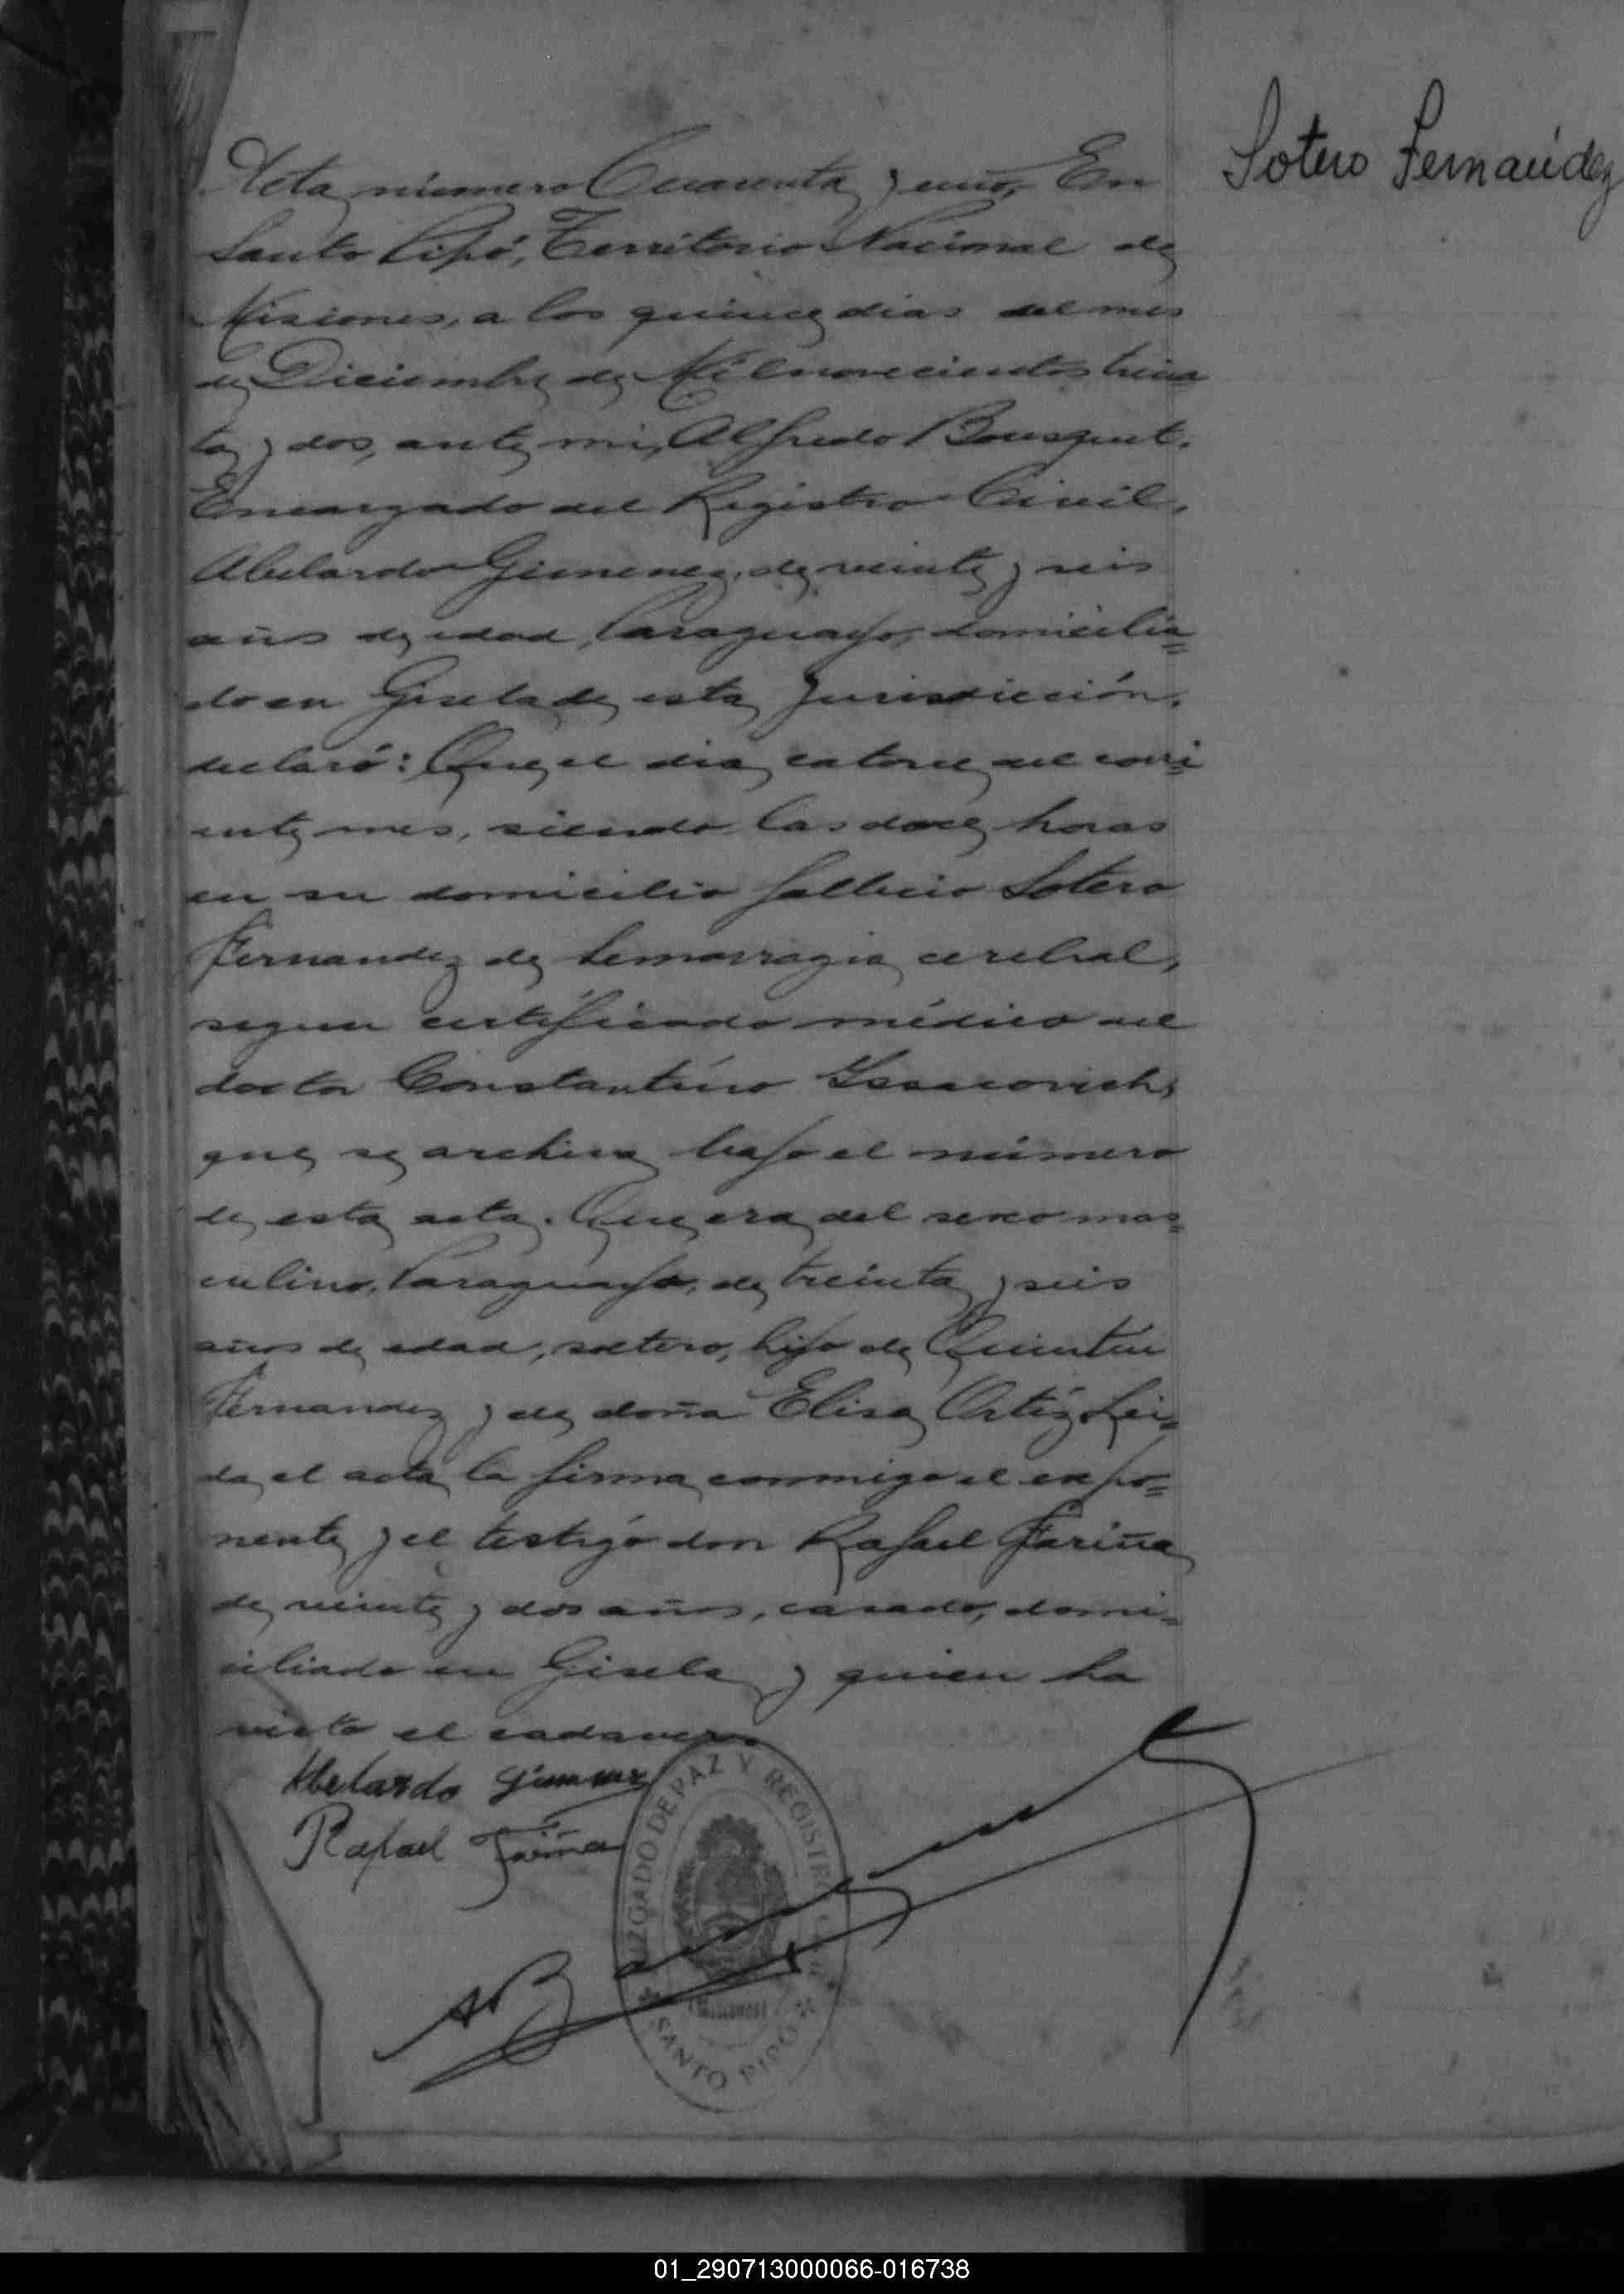 Sotero Fernández
Acta número Cuarenta y uno, En
Santo Pipó, Territorio Nacional de
Misiones, a los quince dias del mes
de Diciembre de Mil novecientos trein
ta y dos, ante mi, Alfredo Bousquet,
Encargado del Registro Civil,
Abelardo Gimenez, de veinte y seis
años de edad, Paraguayo, domicilia=
do en Gisela de esta Jurisdicción,
declaró: Que el dia catorce del corri=
ente mes, siendo las doce horas
en su domicilio fallecio Sotero
Fernandez de hemorragia cerebral,
segun certificado médico del
doctor Constantino Yssacovich,
que se archiva bajo el número
de esta acta. Que era del sexo mas=
culino, Paraguayo, de treinta y seis
años de edad, soltero, hijo de Quintin
Fernandez y de doña Elisa Ortíz. Lei=
da el acta la firma conmigo el expo=
nente y el testigo don Rafael Fariña
de veinte y dos años, casado, domi=
ciliado en Gisela y quien ha
visto el cadaver.
Abelardo Gimenez
Rafael Fariña
JUZGADO DE PAZ Y REGISTRO CIVIL
(Misiones)
SANTO PIPO
01_290713000066-016738